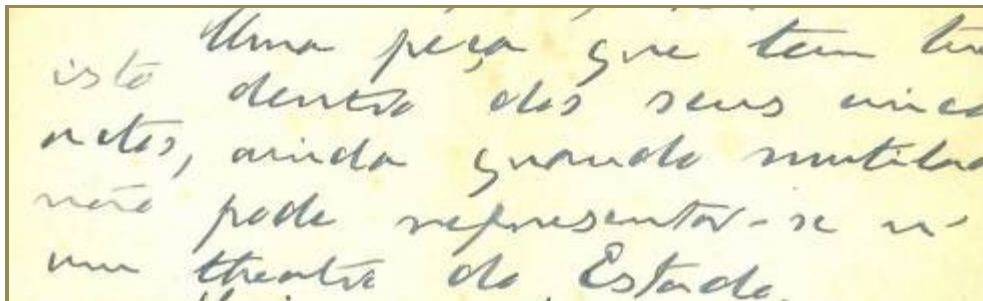 Uma peça que tem tu
isto dentro dos seus cinco
actos, ainda quando mutilad
não pode representar-se n'
um theatro do Estado.